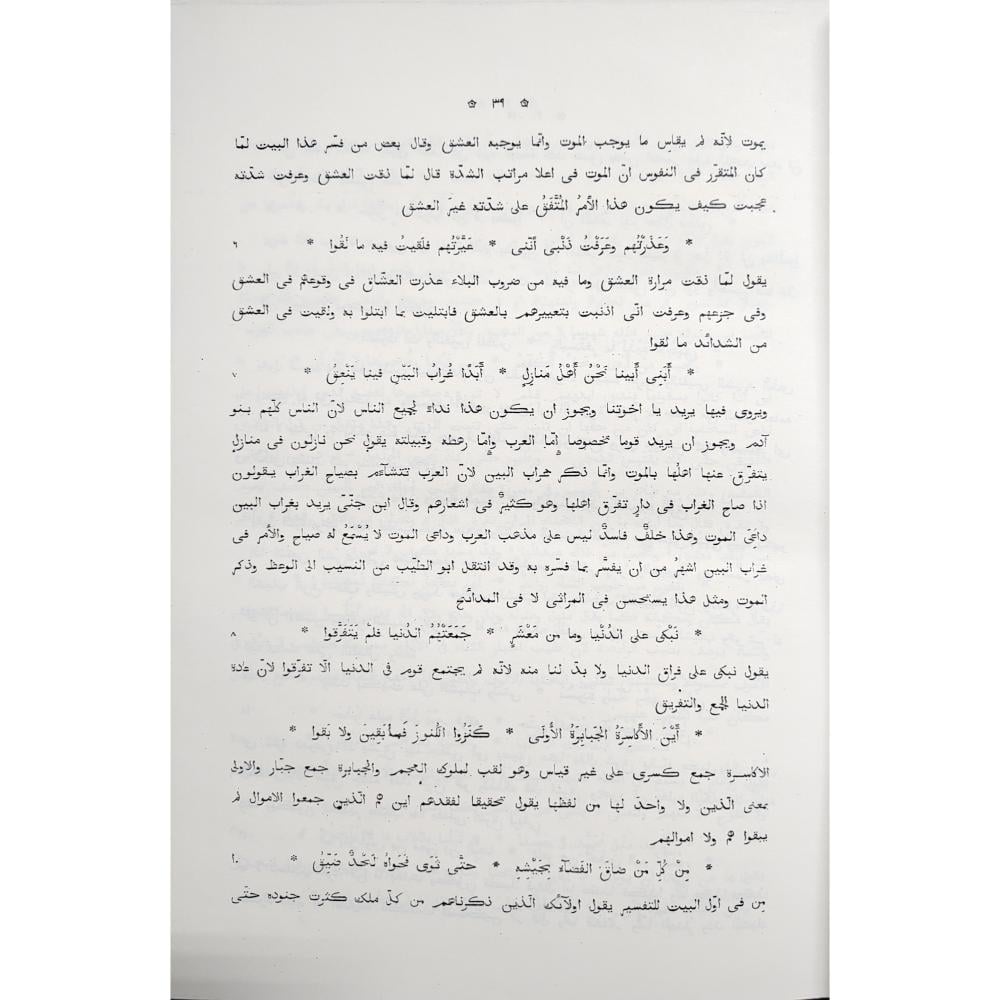 ✩ ٣٩ ✩
يموت لانّه لم يقاس ما يوجب الموت وانّما يوجبه العشق وقال بعض من فسّر هذا البيت لمّا
كان المتقرّر فى النفوس انّ الموت فى اعلا مراتب الشدّة قال لمّا ذقت العشق وعرفت شدّته
عجبت كيف يكون هذا الأمرُ المُتَّفَقُ على شدّته غيرَ العشق
* وَعَذَرْتُهم وعَرَفْتُ ذَنْبى أنّنى * عَيَّرْتُهم فلَقيتُ فيه ما لَقُوا * ٦
يقول لمّا ذقت مرارة العشق وما فيه من ضروب البلاء عذرت العشّاق فى وقوعهم فى العشق
وفى جزعهم وعرفت انّى اذنبت بتعييرهم بالعشق فابتليت بما ابتلوا به ولقيت فى العشق
من الشدائد ما لقوا
* أَبَنِى أَبينا نَحْنُ أَهْلُ مَنازِلٍ * أَبَدًا غُرابُ البَيْنِ فينا يَنْعِقُ * ٧
ويروى فيها يريد يا اخوتنا ويجوز ان يكون هذا نداء لجميع الناس لانّ الناس كلّهم بنو
آدم ويجوز ان يريد قوما مخصوصا إمّا العرب وإمّا رهطه وقبيلته يقول نحن نازلون فى منازل
يتفرّق عنها اهلها بالموت وانّما ذكر غراب البين لانّ العرب تتشآءم بصياح الغراب يقولون
اذا صاح الغراب فى دارٍ تفرّق اهلها وهو كثيرٌ فى اشعارهم وقال ابن جنّى يريد بغراب البين
داعِىَ الموت وهذا خلفٌ فاسدٌ ليس على مذهب العرب وداعى الموت لا يُسْمَعُ له صياح والأمر فى
غراب البين اشهرُ من ان يفسَّر بما فسّره به وقد انتقل ابو الطيّب من النسيب الى الوعظ وذكر
الموت ومثل هذا يستحسن فى المراثى لا فى المدائح
* نَبْكى على الدُنْيا وما من مَعْشَرٍ * جَمَعَتْهُمُ الدُنيا فلمْ يَتَفَرَّقوا * ٨
يقول نبكى على فراق الدنيا ولا بدّ لنا منه لانّه لم يجتمع قوم فى الدنيا الّا تفرّقوا لانّ عادة
الدنيا الجمع والتفريق
* أَيْنَ الأَكاسِرَةُ الجَبابِرَةُ الأُولَى * كَنَزُوا الكُنوزَ فَما بَقِينَ ولا بَقُوا *
الاكاسرة جمع كسرى على غير قياس وهو لقب لملوك العجم والجبابرة جمع جبّار والاولى
بمعنى الّذين ولا واحدَ لها من لفظها يقول تحقيقا لفقدهم اين هم الّذين جمعوا الاموال لم
يبقوا هم ولا اموالهم
* مِنْ كُلِّ مَنْ ضاقَ الفَضآءُ بِجَيْشِهِ * حتَّى ثَوَى فحَواهُ لَحْدٌ ضَيِّقُ * ١٠
مِن فى اوّل البيت للتفسير يقول اولآئك الّذين ذكرناهم من كلّ ملك كثرت جنوده حتّى